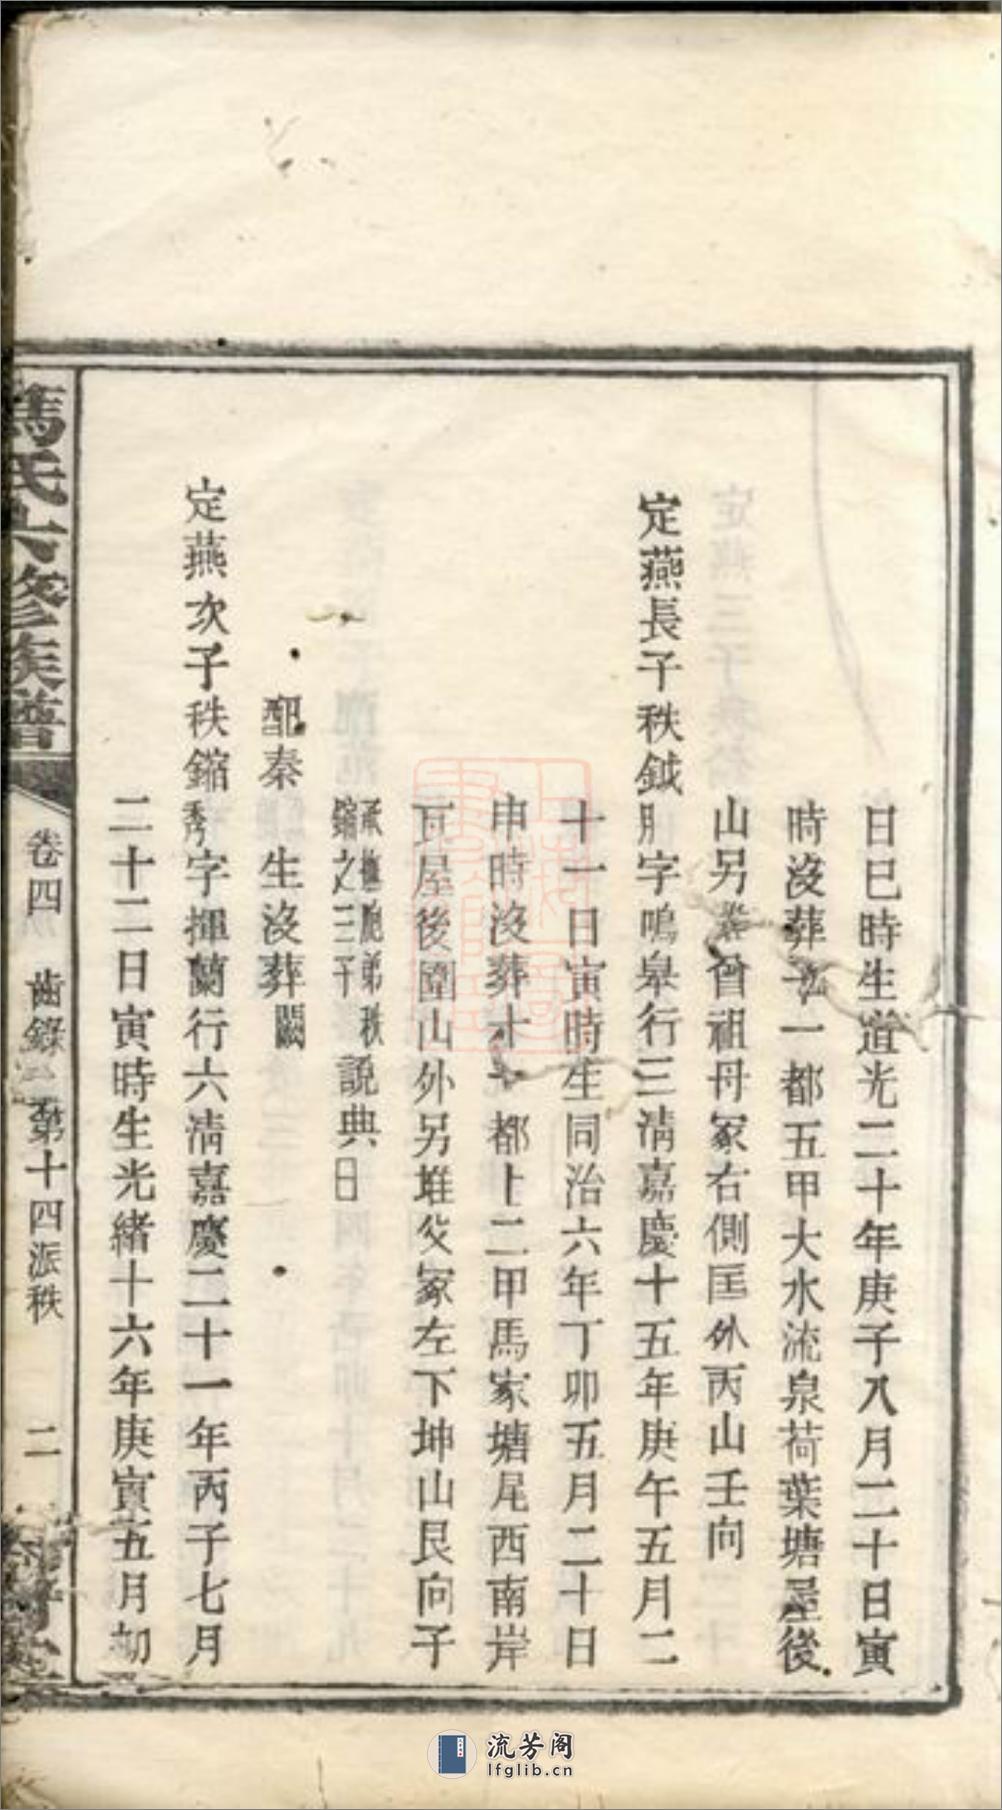 日巳時生道光二十年庚子八月二十日寅
時沒葬一都五甲大水流泉荷葉塘屋後
山另塋曾祖母冢右側匡外丙山壬向
定燕長子秩鉞 字鳴皋行三淸嘉慶十五年庚午五月二
十一日寅時生同治六年丁卯五月二十日
申時沒葬十都上二甲馬家塘尾西南岸
瓦屋後圍山外另堆父冢左下坤山艮向子
承撫胞弟秩
縮之三子
說典
配秦 生沒葬闕
定燕次子秩縮秀字揮蘭行六淸嘉慶二十一年丙子七月
二十二日寅時生光緒十六年庚寅五月初
氏六修族譜
卷四
齒錄
第十四派秩
二
流芳阁
lfglib.cn